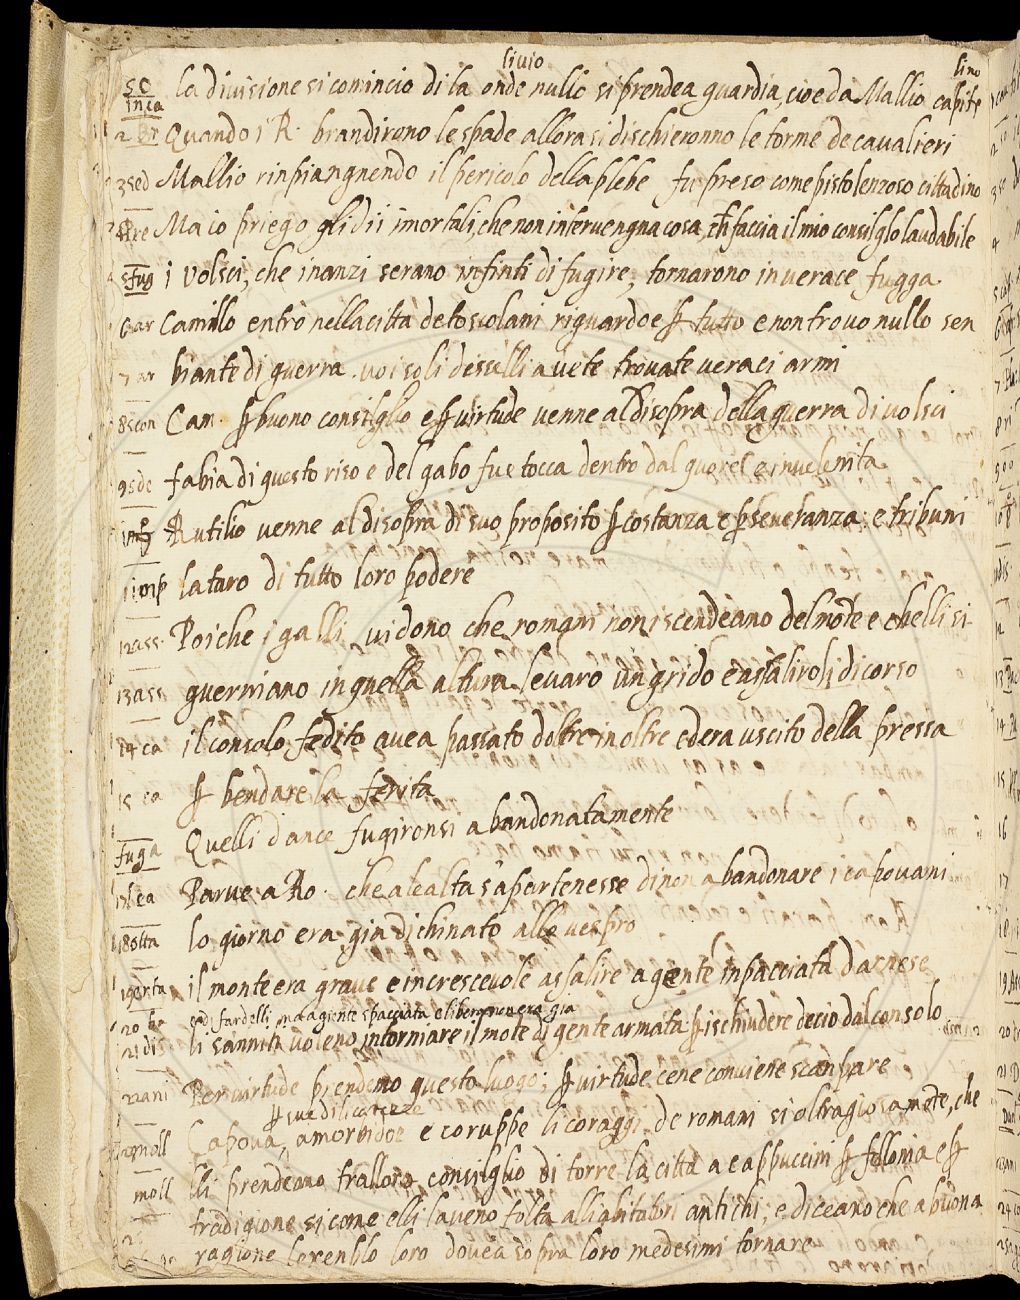 livio
lino
la divisione si comincio di la onde nullo si prendea guardia, cioe da Mallio capite
Quando i R. brandirono le spade allora si dischieronno le torme de cavalieri
3 sed Mallio rinpiangnendo il pericolo della plebe fu preso come pistolenzoso cittadino
4 pre Ma io priego gli dii imortali, che non intervengna cosa, ch faccia il mio consilglo laudabile
5 fug i volsci, che inanzi serano infinti di fugire, tornarono in verace fugga
6 ar Camillo entrò nella città de toscolani riguardoe p tutto e non trovo nullo sen
7 ar biante di guerra. voi soli diss'elli avete trovate veraci armi
8 con Cam. p buono consilglio e p virtude venne al disopra della guerra di volsci
9 sde fabia di questo riso e del gabo fue tocca dentro dal quore e invelenita
Rutilio venne al disopra di suo proposito p costanza e pseveranza; e tribuni
11 mp lataro di tutto loro podere
12 ass. Poiche i galli vidono che romani non iscendeano del mote e chelli si
13 ass guerniano in quella altura levaro un grido e assaliroli di corso
14 ca il consolo fedito avea passato doltre in oltre ed era uscito della pressa
15 ca p bendare la ferita
fuga Quelli dance fugironsi abandonatamente
17 lea Parve a Ro. che a lealta s'apartenesse di non abandonare i capovani
18 otta lo giorno era gia dichinato alle vespro
19 erta il monte era grave e increscevole assalire a gente inpacciata d'arnese
e di fardelli, ma a giente spacciata e libera non era gia
21 dis li sanniti voleno intorniare il mote di gente armata p ischiudere decio dal consolo
22 ani Per virtude prendemo questo luogo; p virtude cene conviene scanpare
p sue dilicatezze
23 moll Capova, amorbidoe e coruppe li coraggi de romani si oltragiosamete, che
moll lli prendeano fralloro consilglio di torre la città a cappuccini p fellonia e p
tradigione si come elli laveno tolta alli abitatori antichi; e diceano che a buona
ragione lexenblo loro dovea sopra loro medesimi tornare